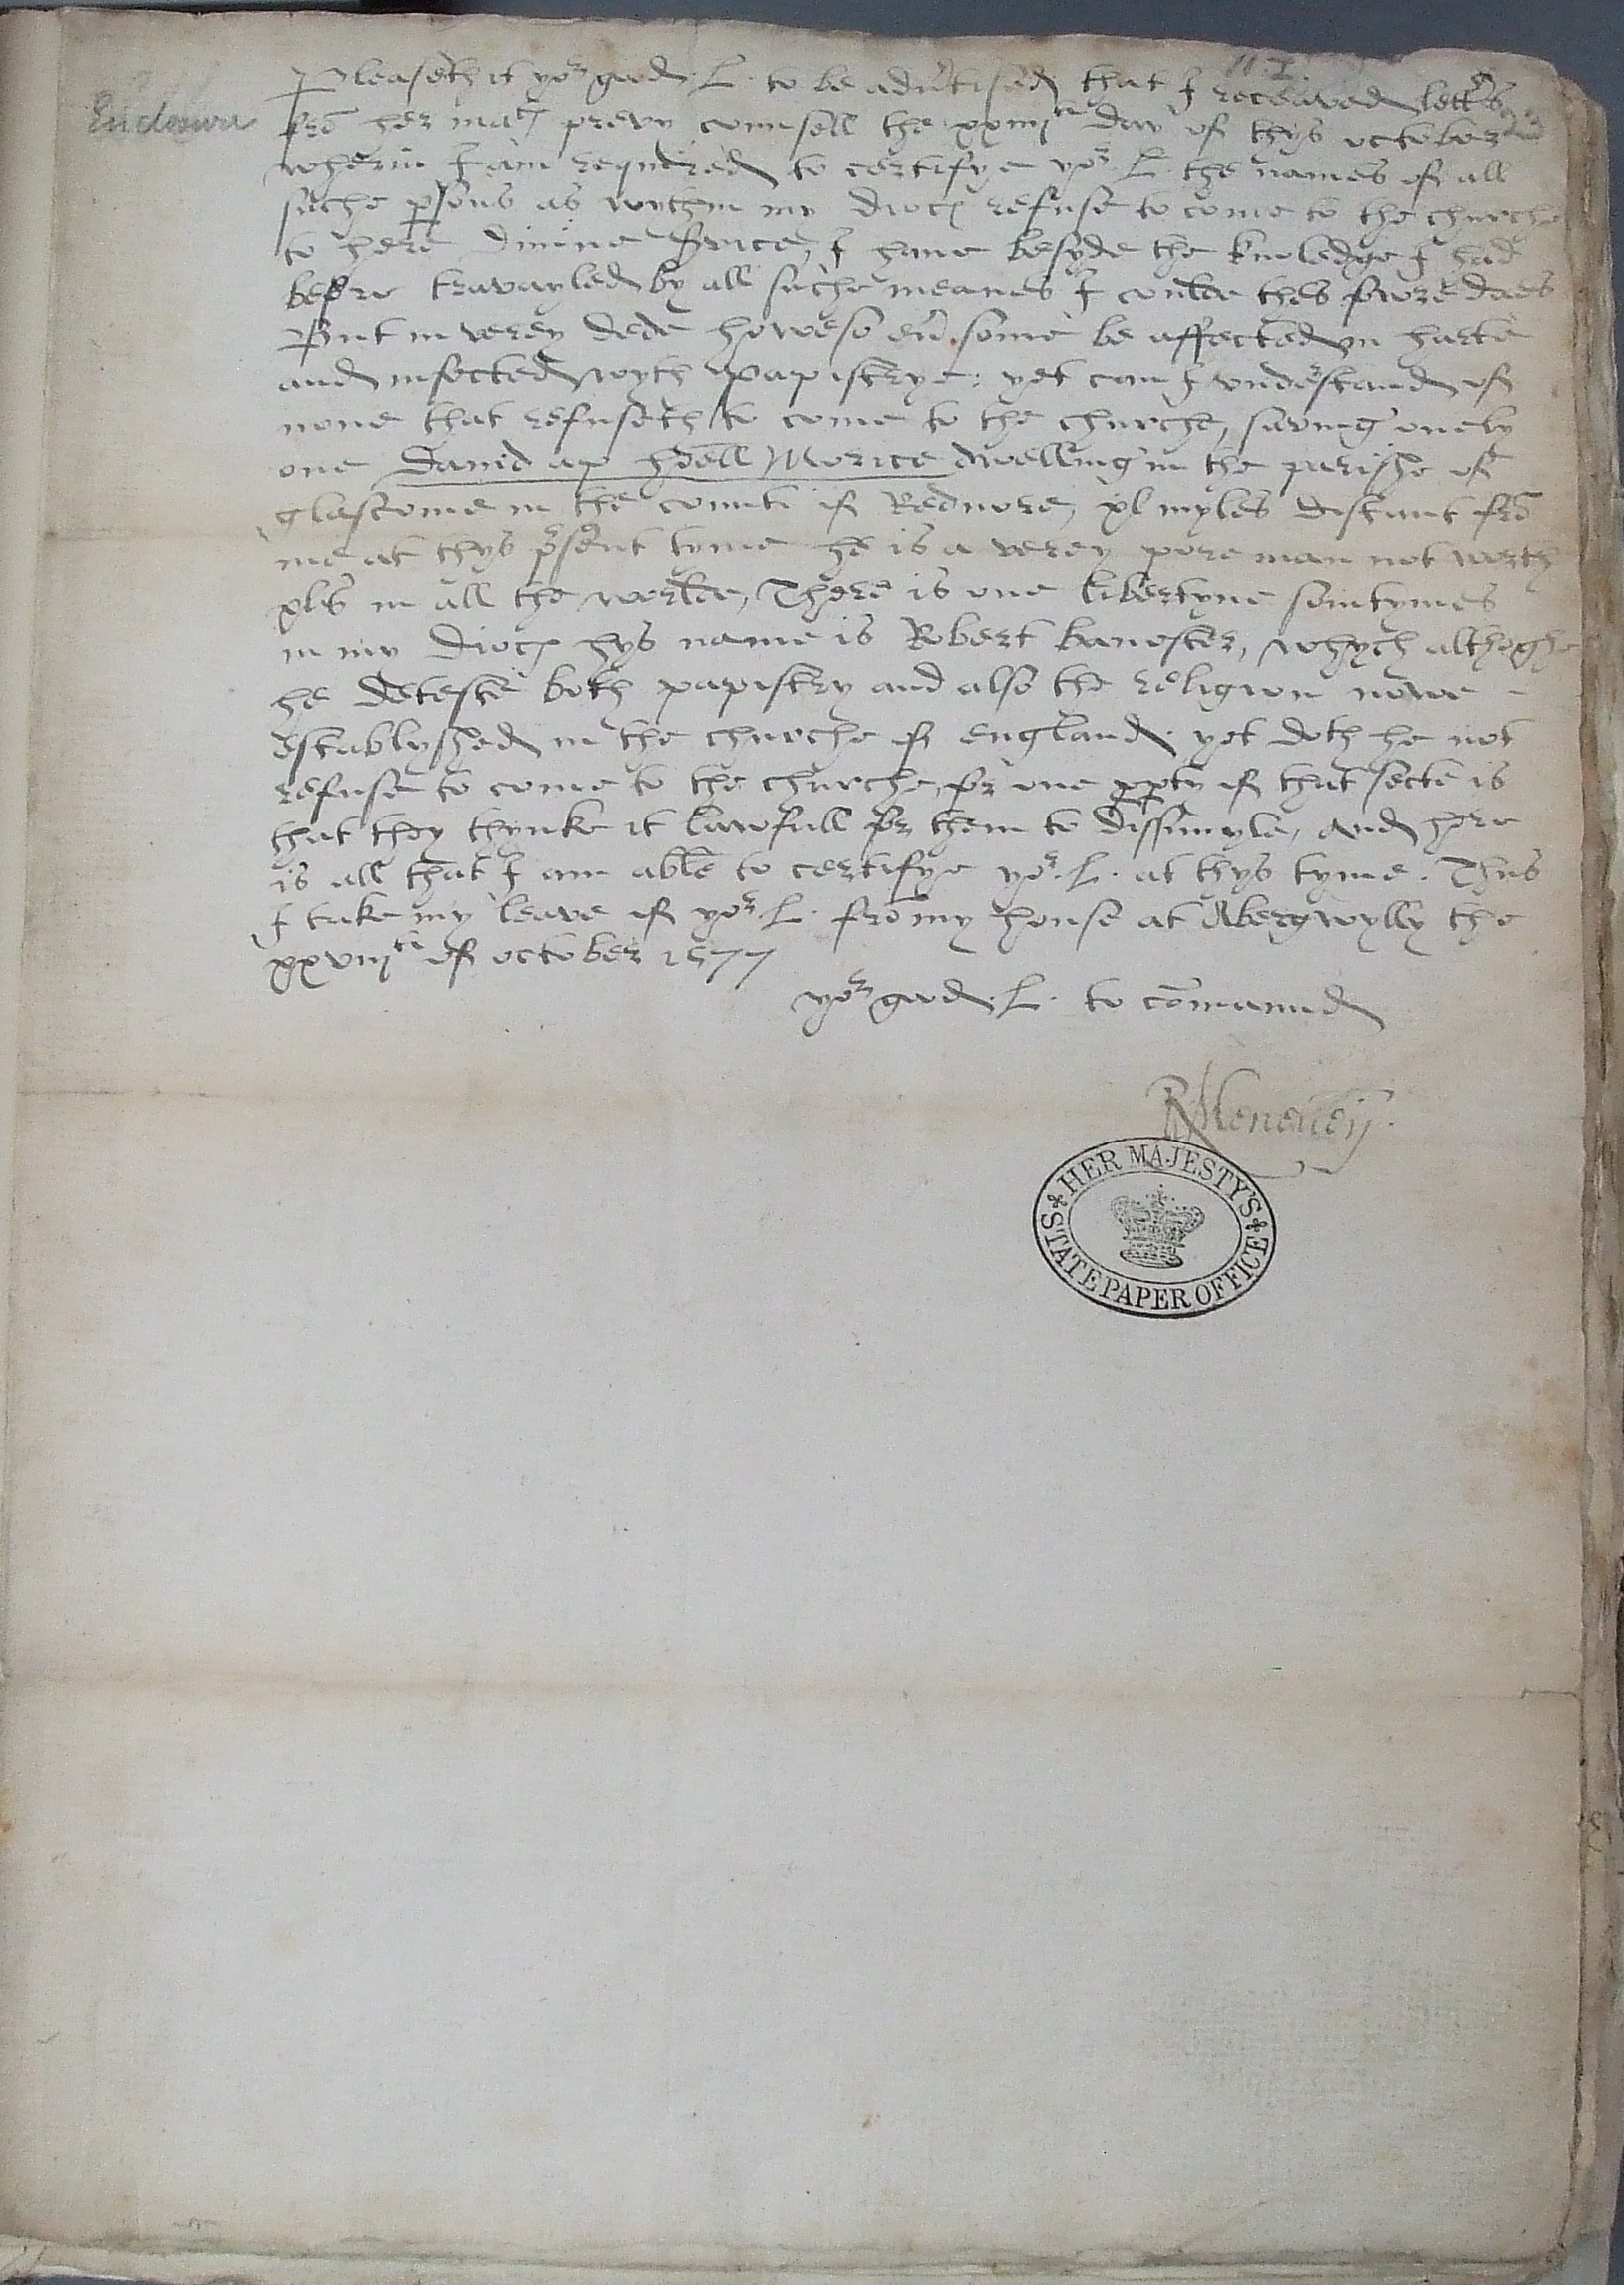 11. I.
Enclosure
Pleaseth it yor good .L. to be adutised that I receaved lettrs
frō her matˢ prevy counsell the xxiiijᵗᵉ day of thys october
wherin I am required to certifye yor .L. the names of all
suche psons as wythin my dioc refuse to come to the churche
to here divine service, I haue besyde the knoledge I had
before travayled by all suche meanes I coulde thes fowre daes
But in verey dede howeso eũ some be affected in harte
and infected wyth papistrye: yet can I understand of
none that refuseth to come to the churche, saving onely
one David ap hoell Morice dwelling in the parishe of
glascome in the counti of Rednore, xl myles distant frō
me at thys psent tyme he is a verey pore man not worth
xls in all the worlde, There is one libertyne somtymes
in my dioc hys name is Robert banester, whych althoghe
he deteste both papistry and also the religion nowe -
establyshed in the churche of england. yet doth he not
refuse to come to the churche, for one ppty of that secte is
that they thynke it lawfull for them to dissimyle, and here
is all that I am able to certifye yor .L. at thys tyme. Thus
I take my leave of yor .L. frō my house at Abergwylly the
xxviijᵗⁱ of october 1577
yor good .L. to cōmaund
R Meneuēn.
HER MAJESTY'S
STATE PAPER OFFICE